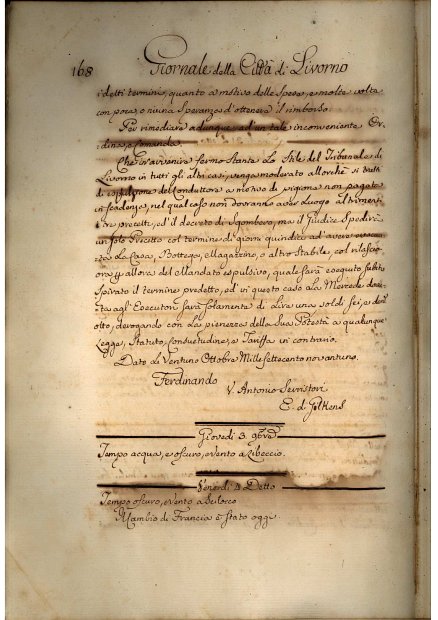 168 Giornale della Città di Livorno
i detti termini, quanto a motivo delle Spese, e molte volte
con poca, o niuna Speranza d'ottenere il rimborso.
Per rimediare adunque ad un tale inconveniente Or-
dina, e Comanda.
Che in avvenire fermo stante Lo Stile del Tribunale di
Livorno in tutti gli altri casi, venga moderato allorchè si tratti
di espulsione del Conduttore a motivo di pigione non pagata
in scadenza, nel qual caso non dovranno aver Luogo altrimen-
ti i precetti, ed il decreto di Sgombero, ma il Giudice Spedirà
un solo Precetto col termine di giorni quindici ad avere
la Casa, Bottega, Magazzino, o altro Stabile, col rilascio
ora per allora del Mandato espulsivo, quale sarà eseguito subito
Spirato il termine predetto, ed in questo caso La Mercede dovu-
ta agl'Esecutori sarà solamente di Lire una soldi sei, e den:
otto, derogando con La pienezza della Sua Potestà a qualunque
Legge, Statuto, Consuetudine, e Tariffa in contrario.
Dato Li Ventuno Ottobre Mille settecento novantuno.
Ferdinando
V. Antonio Serristori
E. di
Giovedì 3. 9bre
Tempo acqua, e oscuro, e vento a Libeccio.
Venerdì Detto
Tempo oscuro, e vento a Scilocco
Il Cambio di Francia è stato oggi